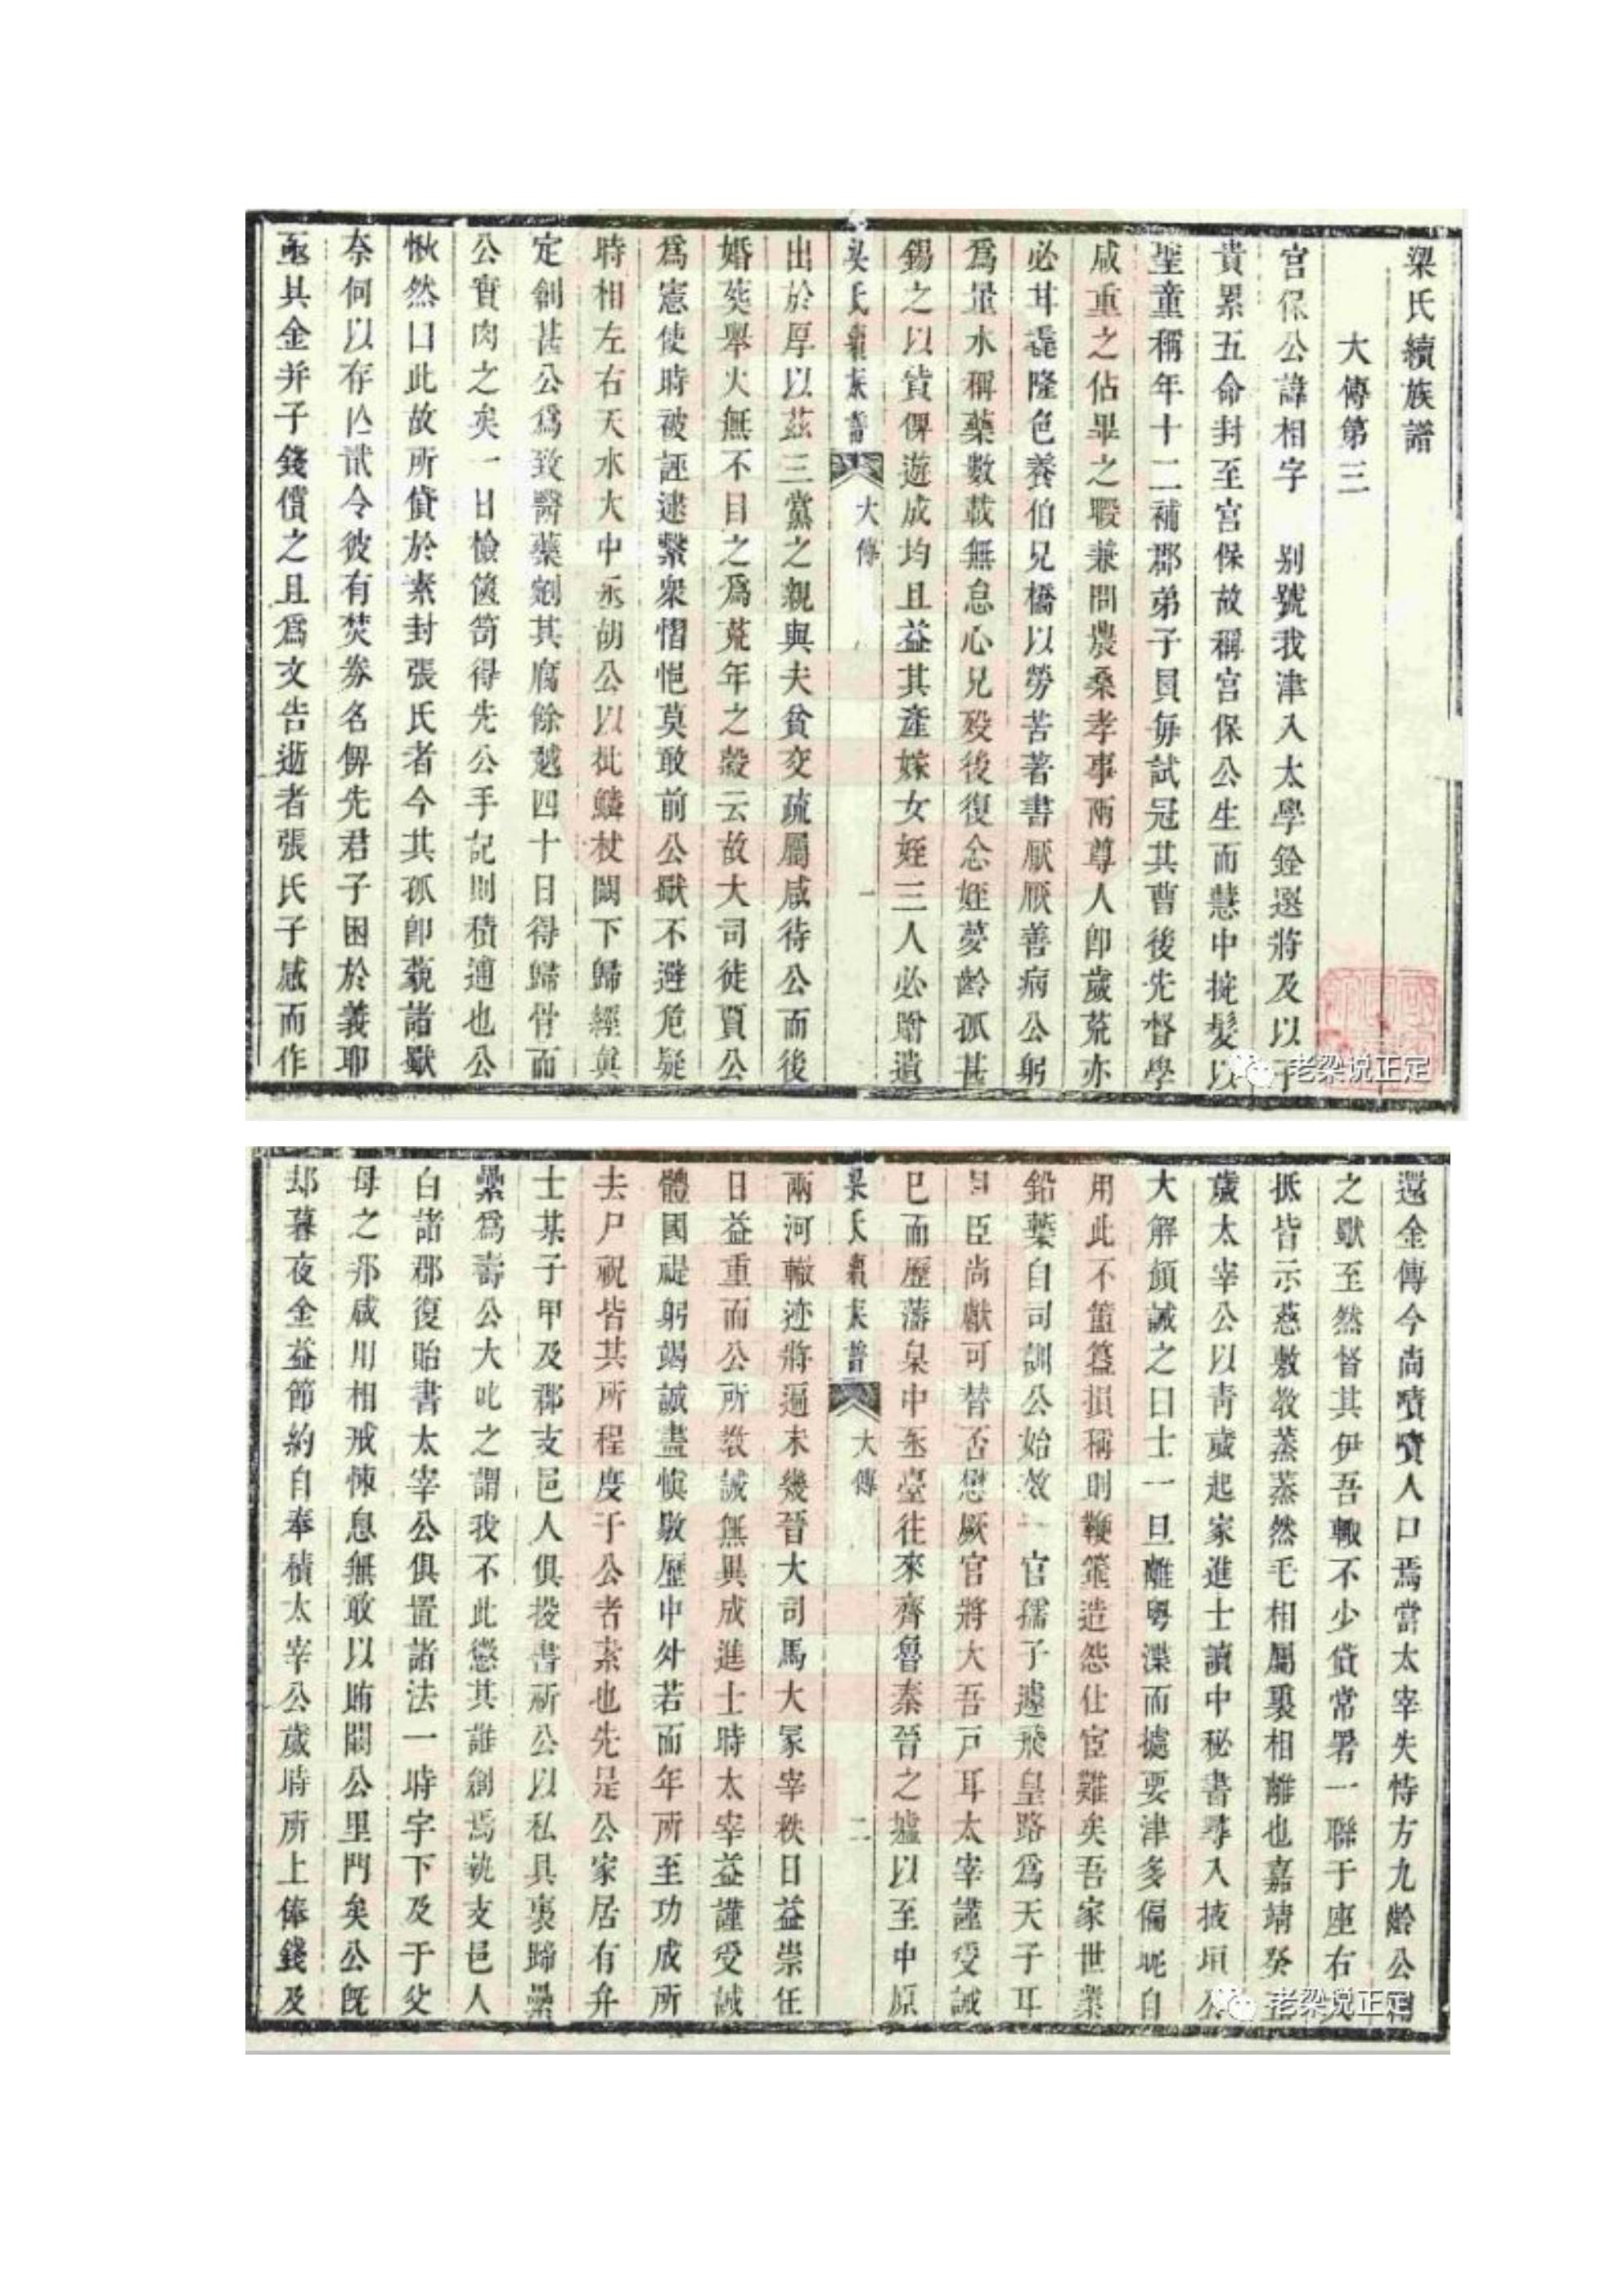 梁氏續族譜
大傳第三
宫保公諱相字　別號我津入太學銓選將及以子
貴累五命封至宫保故稱宫保公生而慧中掞髮以
聖童稱年十二補郡弟子員毎試冠其曹後先督學
咸重之佔畢之暇兼問農桑孝事兩尊人卽歲荒亦
必甘毳隆色養伯兄橋以勞苦著書厭厭善病公躬
爲量水稱藥數載無怠心兄歿後復念姪夢齡孤甚
錫之以貲俾遊成均且益其產嫁女姪三人必贈遺
梁氏續族譜　大傳　一
出於厚以茲三黨之親與夫貧交疏屬咸待公而後
婚葬舉火無不目之爲荒年之穀云故大司徒賈公
爲憲使時被誣逮繫衆慴怛莫敢前公獸不避危疑
時相左右天水大中丞胡公以批鱗杖闕下歸經眞
定創甚公爲致醫藥剜其腐餘越四十日得歸骨而
公實肉之矣一日檢篋笥得先公手記則積逋也公
愀然曰此故所貸於素封張氏者今其孤卽藐諸獸
奈何以存亡貳令彼有焚券名俾先君子困於義耶
亟具金并子錢償之且爲文告逝者張氏子感而作
還金傳今尚嘖嘖人口焉當太宰失恃方九齡公
之獸至然督其伊吾輒不少貸常署一聯于座右大
抵皆示慈敷教蒸蒸然毛相屬裏相離也嘉靖癸丑
歲太宰公以靑歲起家進士讀中秘書尋入掖垣公
大解頷誡之曰士一旦離粤渫而據要津多偏昵自
用此不簠簋損稱則鞭箠造怨仕宦難矣吾家世業
鉛槧自司訓公始效一官孺子遽飛皇路爲天子耳
目臣尚獻可替否懋厥官將大吾戸耳太宰謹受誡
已而歷藩臬中丞臺往來齊魯秦晉之墟以至中原
梁氏續族譜　大傳　二
兩河轍迹將遍未幾晉大司馬大冢宰秩日益崇任
日益重而公所敎誡無異成進士時太宰益謹受誡
體國禔躬竭誠盡愼敭歷中外若而年所至功成所
去尸祝皆其所程度于公者素也先是公家居有弁
士某子甲及郡支邑人俱投書祈公以私具裹蹄纍
纍爲壽公大叱之謂我不此懲其誰創焉執支邑人
白諸郡復貽書太宰公俱置諸法一時字下及于父
母之邦咸用相戒悚息無敢以賄闞公里門矣公旣
却暮夜金益節約自奉積太宰公歲時所上俸錢及
老梁说正定
老梁说正定